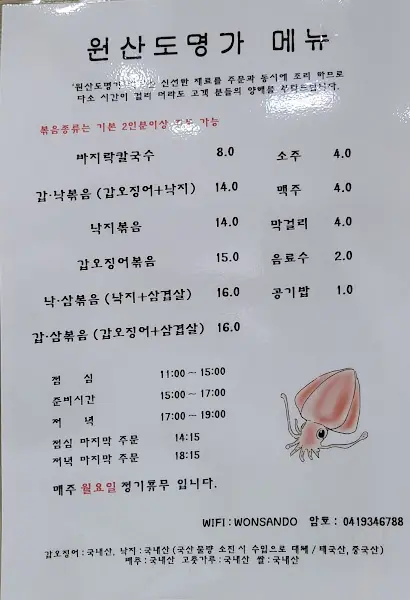 원산도명가 메뉴
'원산도명가 신선한 재료를 주문과 동시에 조리 하므로
다소 시간이 걸리 더라도 고객 분들의 양해를 부탁드립니다.
볶음종류는 기본 2인분이상 가능
바지락칼국수 8.0 소주 4.0
갑·낙볶음 (갑오징어+낙지) 14.0 맥주 4.0
낙지볶음 14.0 막걸리 4.0
갑오징어볶음 15.0 음료수 2.0
낙·삼볶음 (낙지+삼겹살) 16.0 공기밥 1.0
갑·삼볶음 (갑오징어+삼겹살) 16.0
점 심 11:00 ~ 15:00
준비시간 15:00 ~ 17:00
저 녁 17:00 ~ 19:00
점심 마지막 주문 14:15
저녁 마지막 주문 18:15
매주 월요일 정기휴무 입니다.
WIFI : WONSANDO 암호 : 0419346788
갑오징어 : 국내산, 낙지 : 국내산 (국산 물량 소진 시 수입으로 대체 / 태국산, 중국산)
배추 : 국내산 고춧가루 : 국내산 쌀 : 국내산